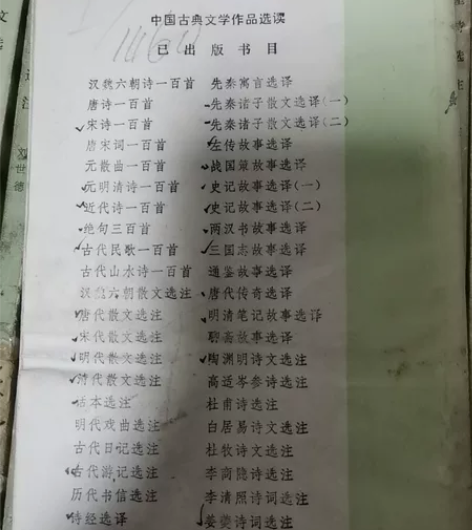 中国古典文学作品选读
已出版书目
汉魏六朝诗一百首 先秦寓言选译
唐诗一百首 先秦诸子散文选译(一)
宋诗一百首 先秦诸子散文选译(二)
唐宋词一百首 左传故事选译
元散曲一百首 战国策故事选译
元明清诗一百首 史记故事选译(一)
近代诗一百首 史记故事选译(二)
绝句三百首 两汉书故事选译
古代民歌一百首 三国志故事选译
古代山水诗一百首 通鉴故事选译
汉魏六朝散文选注 唐代传奇选译
唐代散文选注 明清笔记故事选译
宋代散文选注 聊斋故事选译
明代散文选注 陶渊明诗文选注
清代散文选注 高适岑参诗选注
话本选注 杜甫诗选注
明代戏曲选注 白居易诗文选注
古代日记选注 杜牧诗文选注
古代游记选注 李商隐诗选注
历代书信选注 李清照诗词选注
诗经选译 姜夔诗词选注